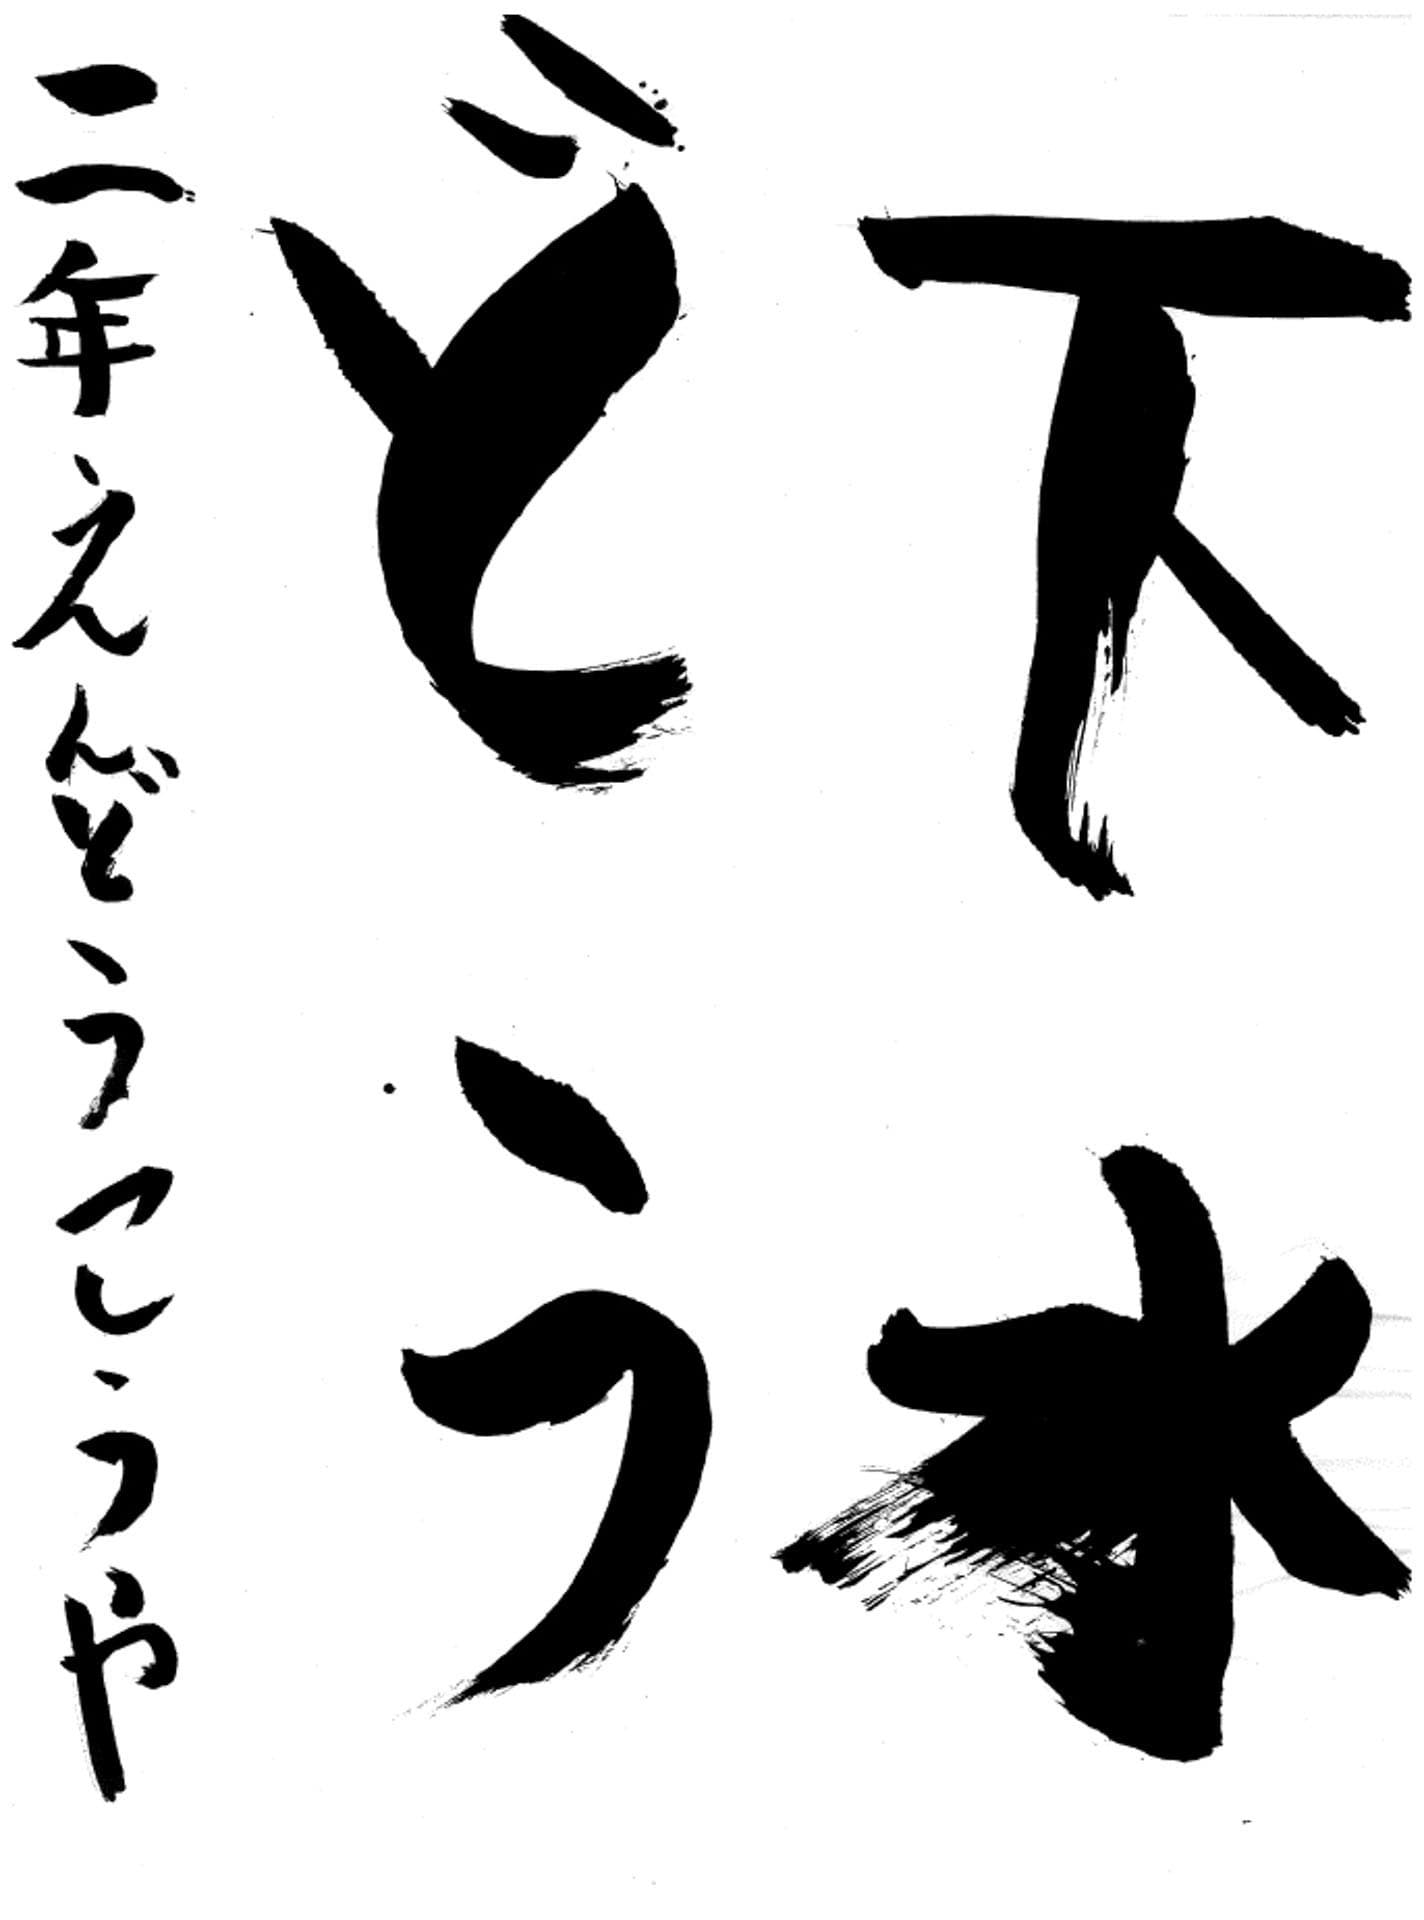 下水
どう
二年えんどうこうや